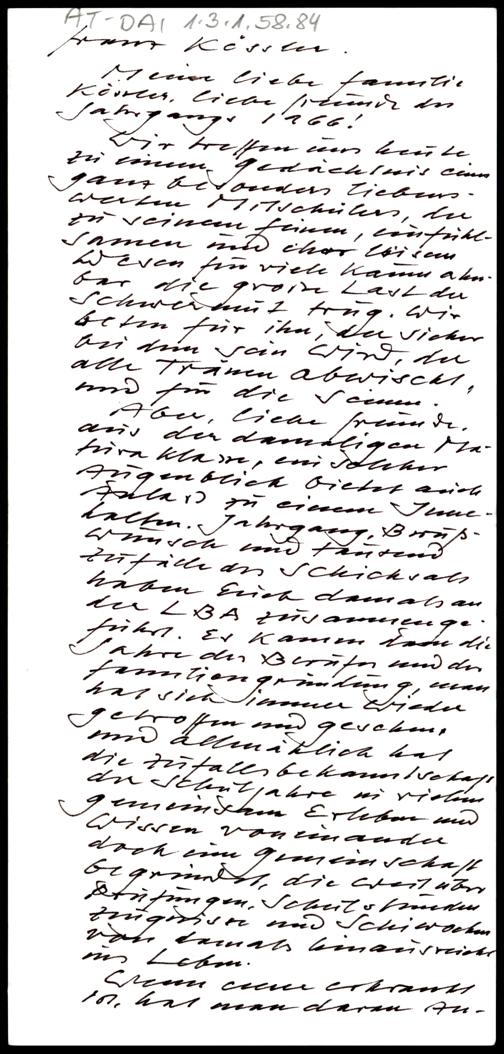 AT-DAI 1.3.1.58.84
Franz Kössler.
Meine liebe Familie
Kössler, liebe Freunde des
Jahrgangs 1966!
Wir treffen uns heute
zu einem Gedächtnis eines
ganz besonders liebens-
werten Mitschülers, der
zu seinem feinen, einfühl-
samen und eher leisen
Wesen für viele kaum ahn-
bar die große Last der
Schwermut trug. Wir
beten für ihn, der sicher
bei dem sein wird, der
alle Tränen abwischt,
und für die Seinen.
Aber, liebe Freunde,
aus der damaligen Ma-
turaklasse, ein solcher
Augenblick bietet auch
Anlaß zu einem Inne-
halten. Jahrgang, Berufs-
wunsch und tausend
Zufälle des Schicksals
haben Euch damals an
der LBA zusammenge-
führt. Es kamen dann die
Jahre des Berufes und der
Familiengründung, man
hat sich immer wieder
getroffen und gesehen,
und allmählich hat
die Zufallsbekanntschaft
der Schuljahre in vielem
gemeinsam Erleben und
Wissen voneinander
doch eine Gemeinschaft
begründet, die weit über
Prüfungen, Schulstunden
Zeugnisse und Schiwochen
von damals hinausreicht
ins Leben.
Wenn einer erkrankt
ist, hat man daran An-